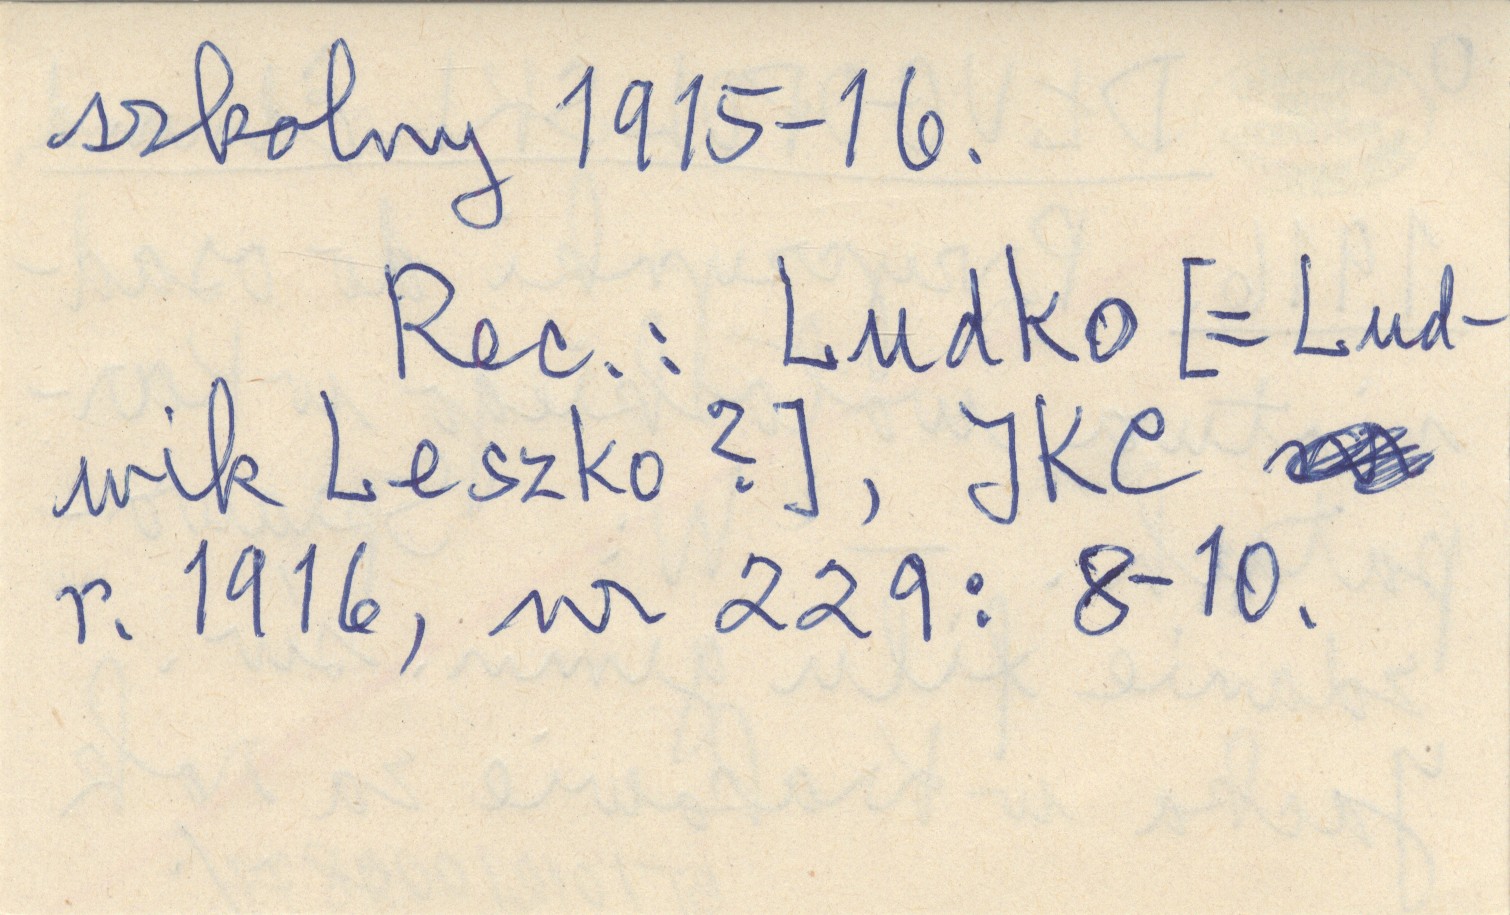 szkolny 1915-16.
Rec.: Ludko [= Lud-
wik Leszko?], JKC
r. 1916, nr 229: 8-10.